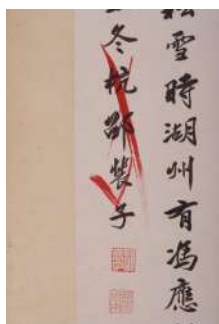 松雪時湖州有馮應
冬杭邵裴子